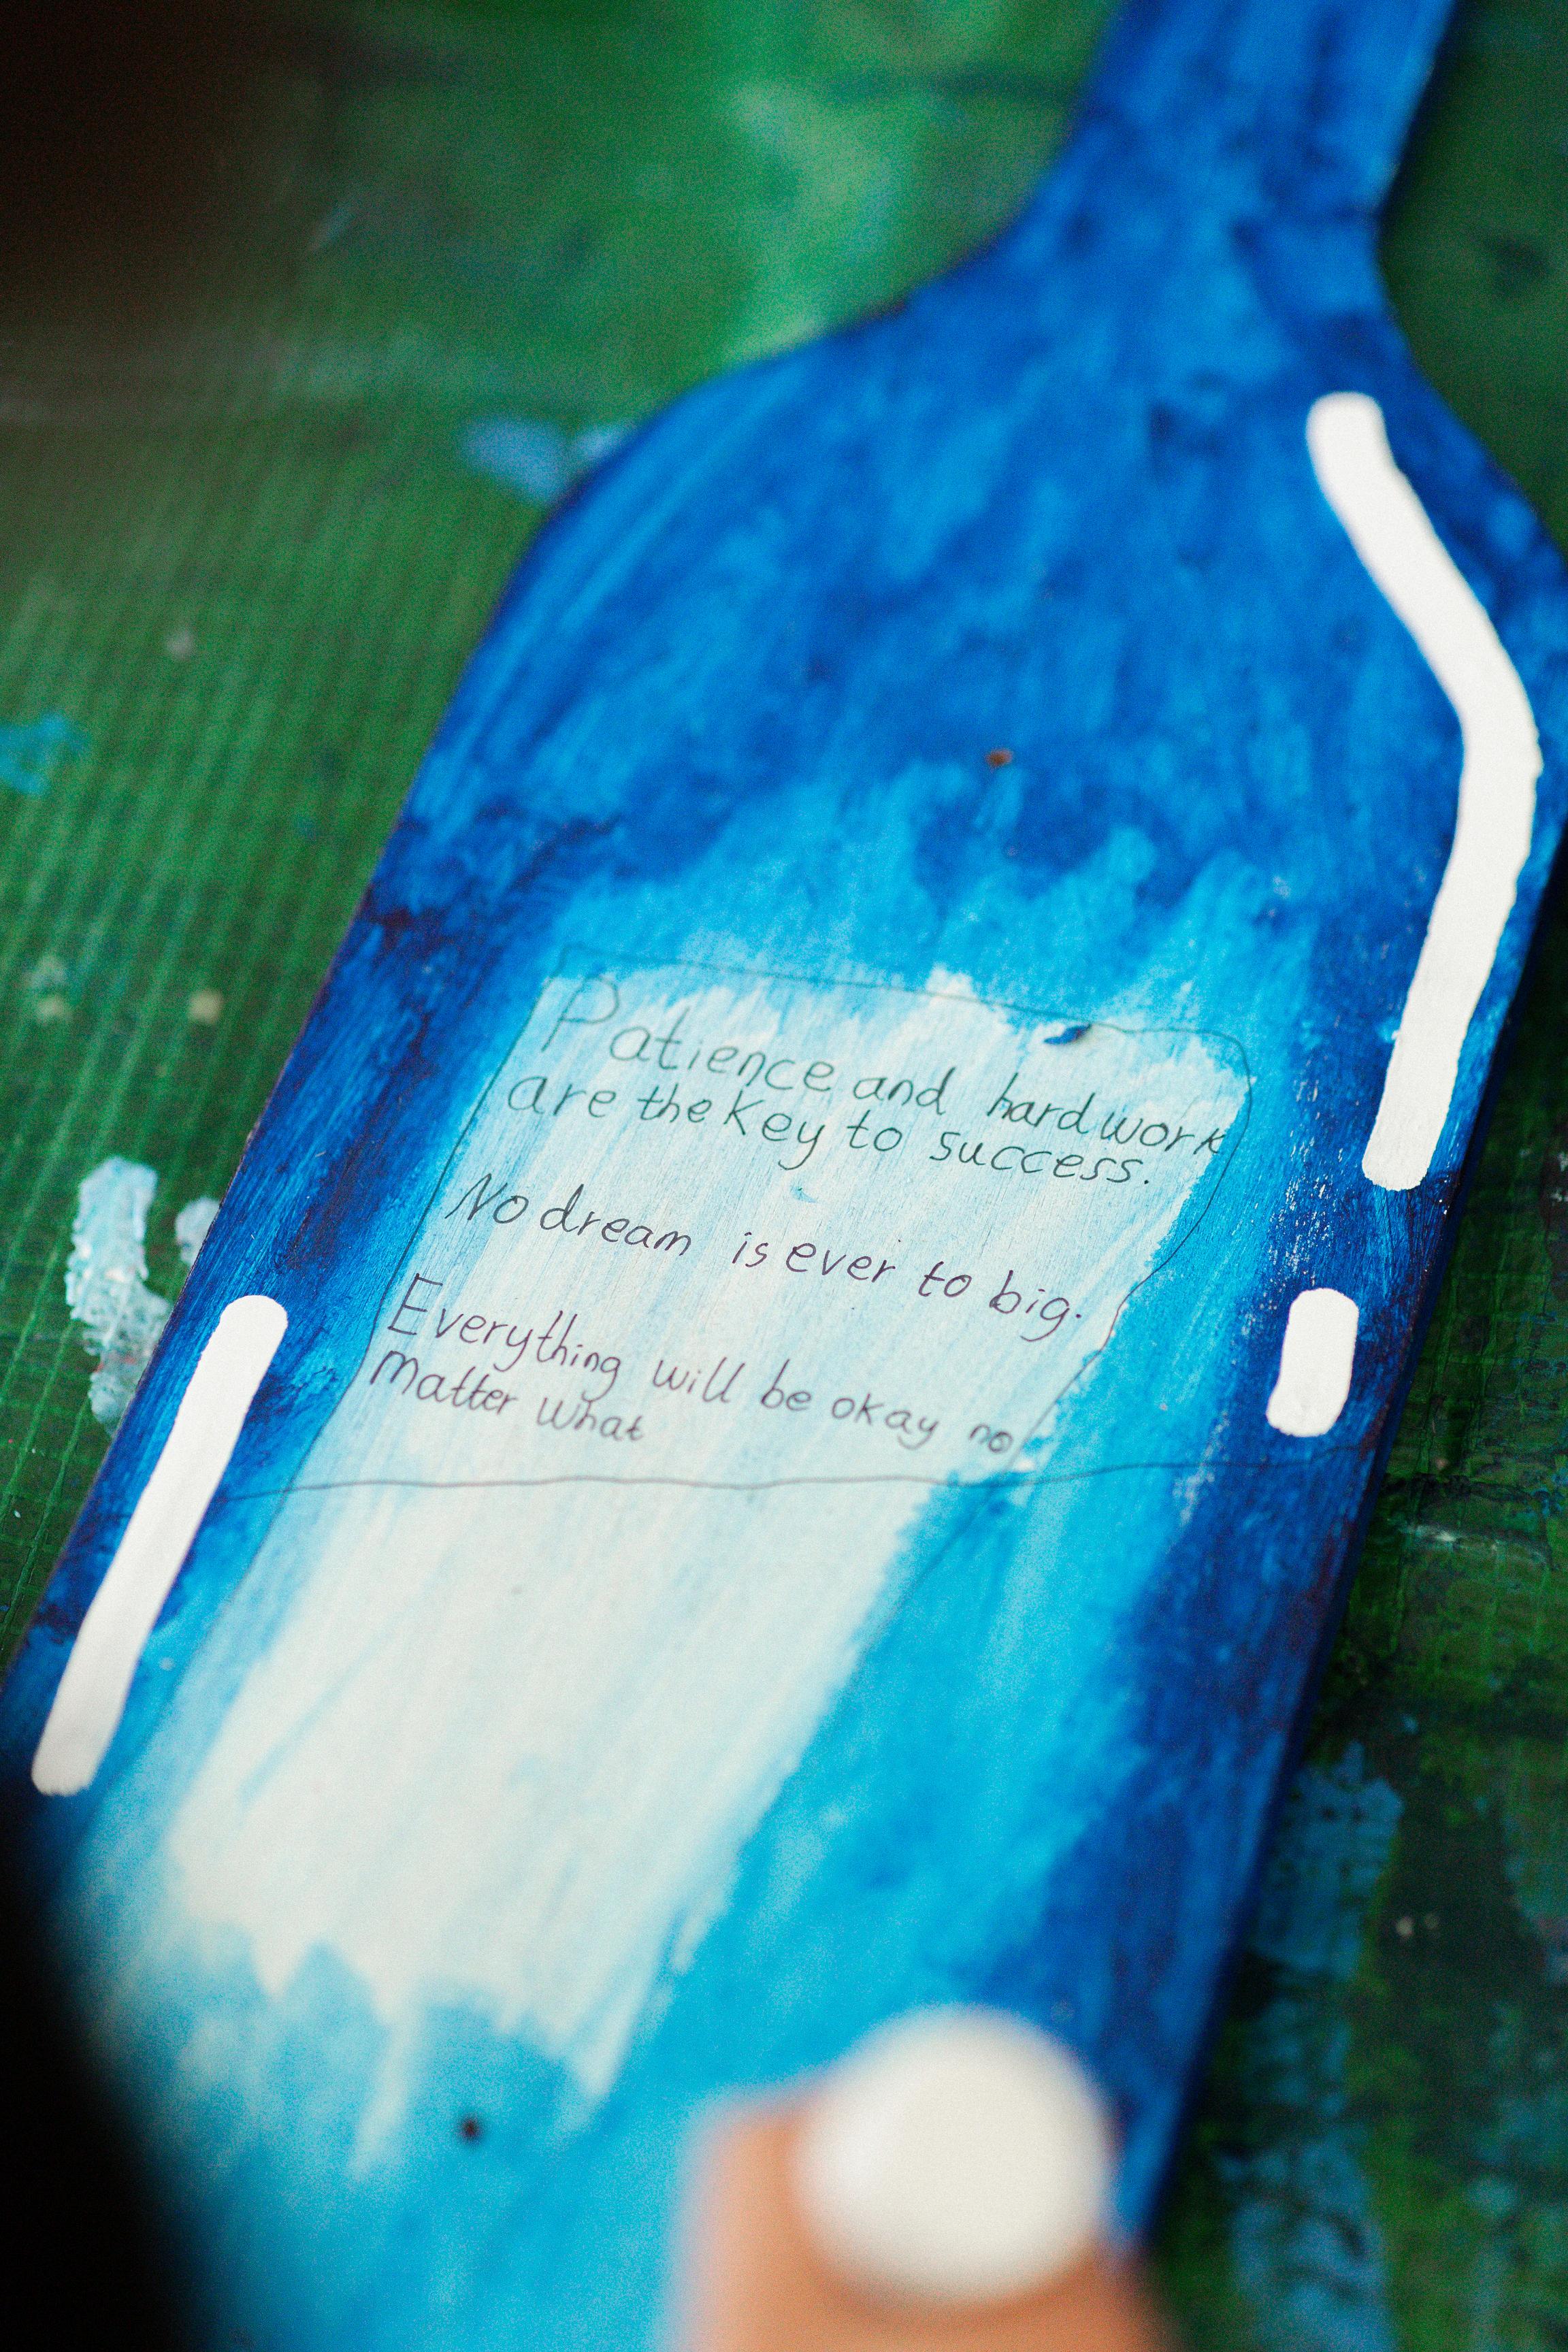 Patience and hard work
are the key to success.
No dream is ever to big.
Everything will be okay no
matter what